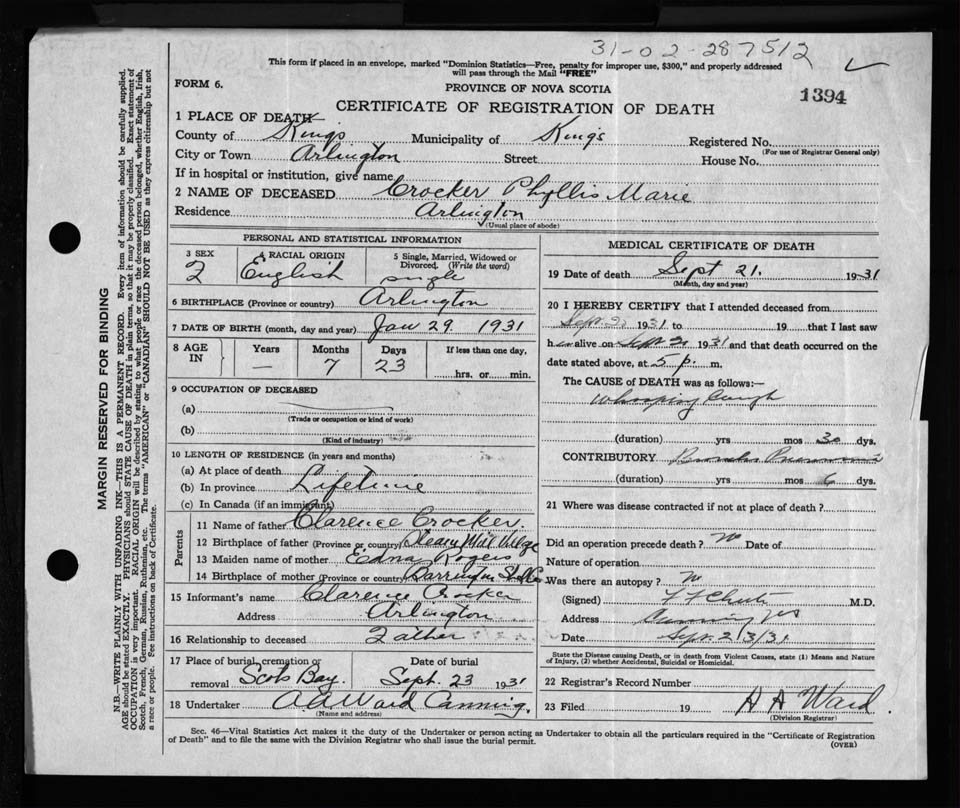 31-02-287512
This form if placed in an envelope, marked "Dominion Statistics—Free, penalty for improper use, $300," and properly addressed
will pass through the Mail "FREE"
FORM 6.
PROVINCE OF NOVA SCOTIA
1394
CERTIFICATE OF REGISTRATION OF DEATH
1 PLACE OF DEATH—
County of Kings Municipality of Kings Registered No.
(For use of Registrar General only)
City or Town Arlington Street House No.
If in hospital or institution, give name
2 NAME OF DECEASED Crocker Phyllis Marie
Residence Arlington
(Usual place of abode)
PERSONAL AND STATISTICAL INFORMATION
3 SEX 4 RACIAL ORIGIN 5 Single, Married, Widowed or Divorced. (Write the word)
English single
6 BIRTHPLACE (Province or country) Arlington
7 DATE OF BIRTH (month, day and year) Jan 29. 1931
8 AGE IN Years Months Days If less than one day,
— 7 23 hrs. or min.
9 OCCUPATION OF DECEASED
(a)
(Trade or occupation or kind of work)
(b)
(Kind of industry)
10 LENGTH OF RESIDENCE (in years and months)
(a) At place of death
(b) In province Lifetime
(c) In Canada (if an immigrant)
Parents
11 Name of father Clarence Crocker.
12 Birthplace of father (Province or country)
13 Maiden name of mother Edna Rogers
14 Birthplace of mother (Province or country) Barrington
15 Informant's name Clarence Crocker
Address Arlington
16 Relationship to deceased Father
17 Place of burial, cremation or removal Scots Bay. Date of burial Sept. 23 1931
18 Undertaker A A Ward Canning.
(Name and address)
MEDICAL CERTIFICATE OF DEATH
19 Date of death Sept 21. 1931
(Month, day and year)
20 I HEREBY CERTIFY that I attended deceased from
Sept 1931 to 19 that I last saw
h alive on Sept 21 1931 and that death occurred on the
date stated above, at 5 p. m.
The CAUSE of DEATH was as follows:—
Whooping Cough
(duration) yrs mos 30 dys.
CONTRIBUTORY Broncho Pneumonia
(duration) yrs mos 6 dys.
21 Where was disease contracted if not at place of death?
Did an operation precede death? No Date of
Nature of operation
Was there an autopsy? No
(Signed) M.D.
Address Canning NS
Date Sept. 31
State the Disease causing Death, or in death from Violent Causes, state (1) Means and Nature
of Injury, (2) whether Accidental, Suicidal or Homicidal.
22 Registrar's Record Number
23 Filed 19 A A Ward
(Division Registrar)
Sec. 46—Vital Statistics Act makes it the duty of the Undertaker or person acting as Undertaker to obtain all the particulars required in the "Certificate of Registration
of Death" and to file the same with the Division Registrar who shall issue the burial permit.
(OVER)
MARGIN RESERVED FOR BINDING
N.B.—WRITE PLAINLY WITH UNFADING INK—THIS IS A PERMANENT RECORD. Every item of information should be carefully supplied.
AGE should be stated EXACTLY. PHYSICIANS should STATE CAUSE OF DEATH in plain terms, so that it may be properly classified. Exact statement of
OCCUPATION is very important. RACIAL ORIGIN will be described by stating to what people or race the deceased person belonged, whether English, Irish,
Scotch, French, German, Russian, Ruthenian, etc. The terms "AMERICAN" or "CANADIAN" SHOULD NOT BE USED as they express citizenship but not
a race or people. See instructions on back of Certificate.